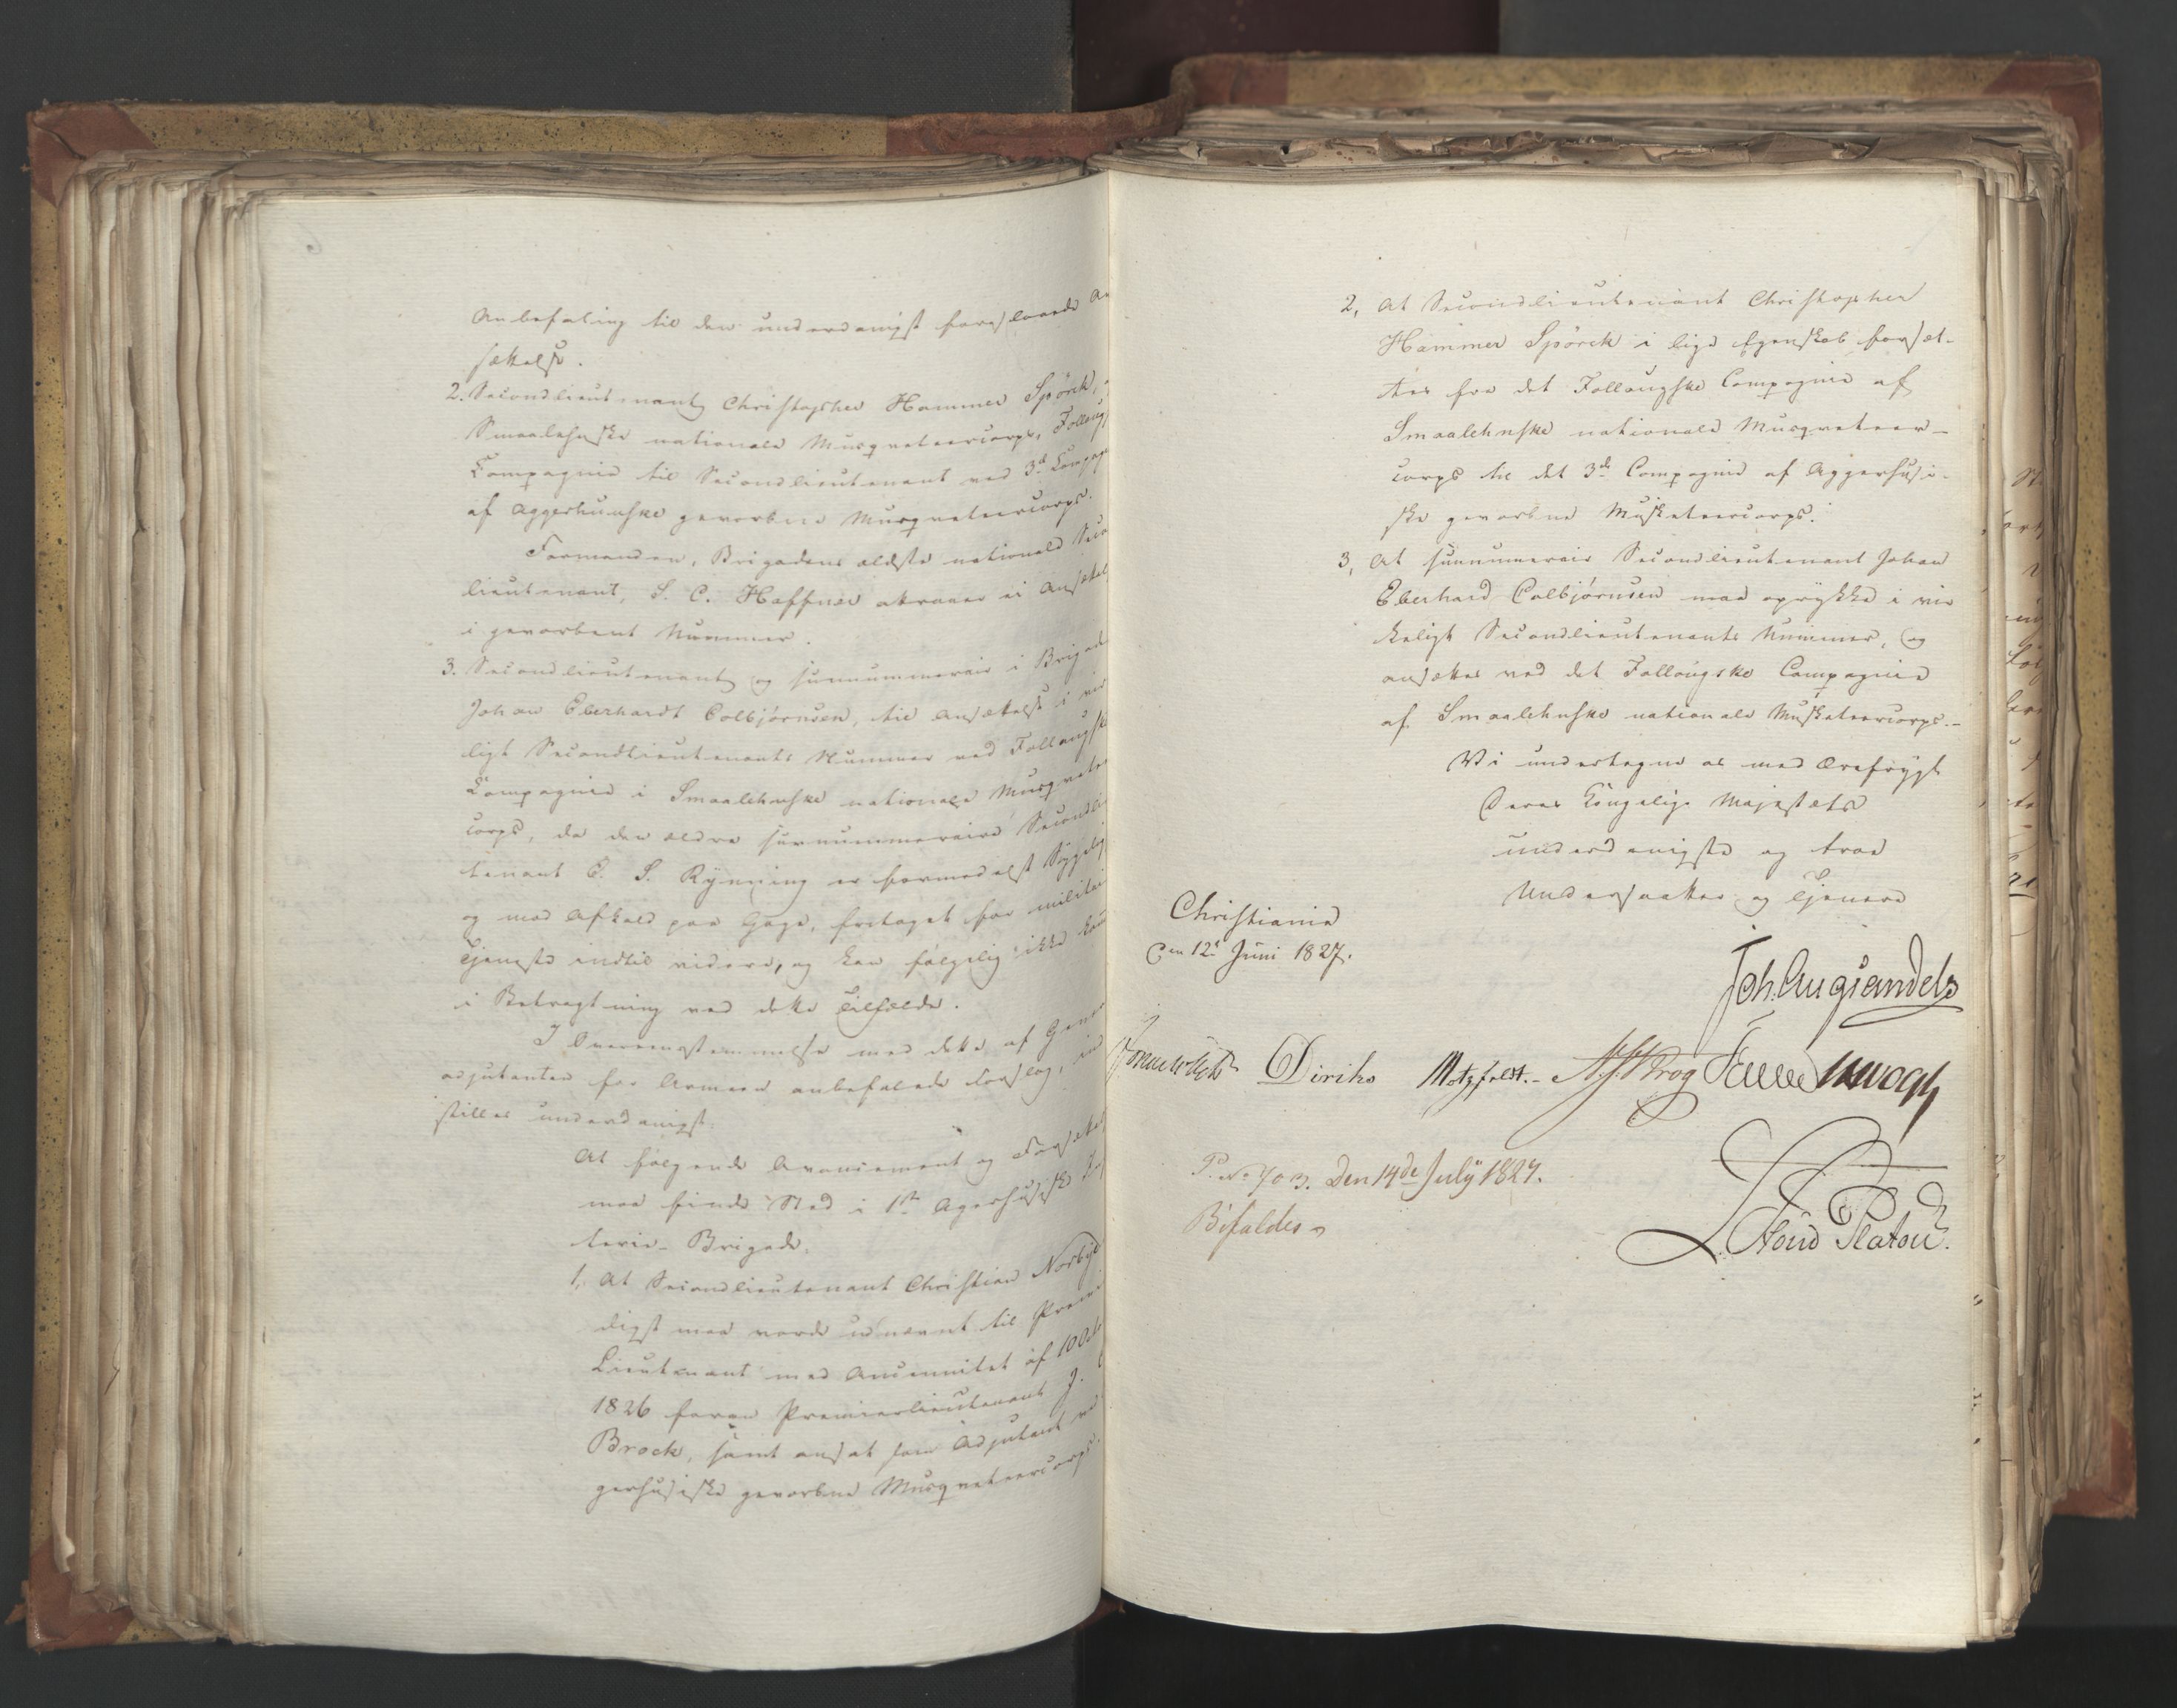 Anbefaling til den underdanigst foreslaaede An
sættelse.
2. Secondlieutenant Christopher Hammer Spörck,
Smaalehnske nationale Musqveteercorps, Follougs
Compagnie til Secondlieutenant ved 3d Compag
af Aggerhuusske gevorbne Musqveteercorps.
Formanden, Brigadens ældste nationale Seco
lieutenant, S. C. Haffner attraaer ei Ansættel
i gevorbent Nummer.
3. Secondlieutenant og surnummerair i Brigade
Johan Eberhardt Colbjørnsen, til Ansættelse i vir
ligt Secondlieutenants Nummer ved Follougske
Compagnie i Smaalehnske nationale Musqvetee
corps, da den ældre surnummeraire Secondli
tenant E. S. Rynning er formedelst Sygelig
og med Afkald paa Gage, fritaget for militai
Tjeneste indtil videre, og kan følgelig ikke kom
i Betragtning ved dette Tilfælde.
I Overeensstemmelse med dette af Gener
adjutanten for Armeen anbefalede Forslag, ind
stilles underdanigst:
At følgende Avancement og Forsættel
maa finde Sted i 1ste Agerhusiske Inf
terie-Brigade.
1, At Secondlieutenant Christian Norbye
digst maa vorde udnævnt til Premi
Lieutenant med Anciennitet af 10 Octo
1826 foran Premierlieutenant J. C
Brock, samt ansat som Adjutant ved
gerhusiske gevorbne Musqveteercorps.
2, At Secondlieutenant Christopher
Hammer Spörck i lige Egenskab forsæt-
tes fra det Follougske Compagnie af
Smaalehnske nationale Musqveteer-
corps til det 3de Compagnie af Aggerhusi-
ske gevorbne Musketeercorps.
3, At surnummerair Secondlieutenant Johan
Eberhard Colbjørnsen maa oprykke i vir
keligt Secondlieutenants Nummer, og
ansættes ved det Follougske Compagnie
af Smaalehnske nationale Musketeercorps.-
Vi undertegne os med Ærefrygt
Deres Kongelige Majestæts
underdanigste og troe
Undersaatter og Tjenere
Christiania
den 12te Juni 1827.
Joh. Aug Sandels
Sommerhielm Diriks Motzfeldt.- A. J. Krog Fasting
P. No 703. Den 14de July 1827.
Bifaldes
Stoud Platou.